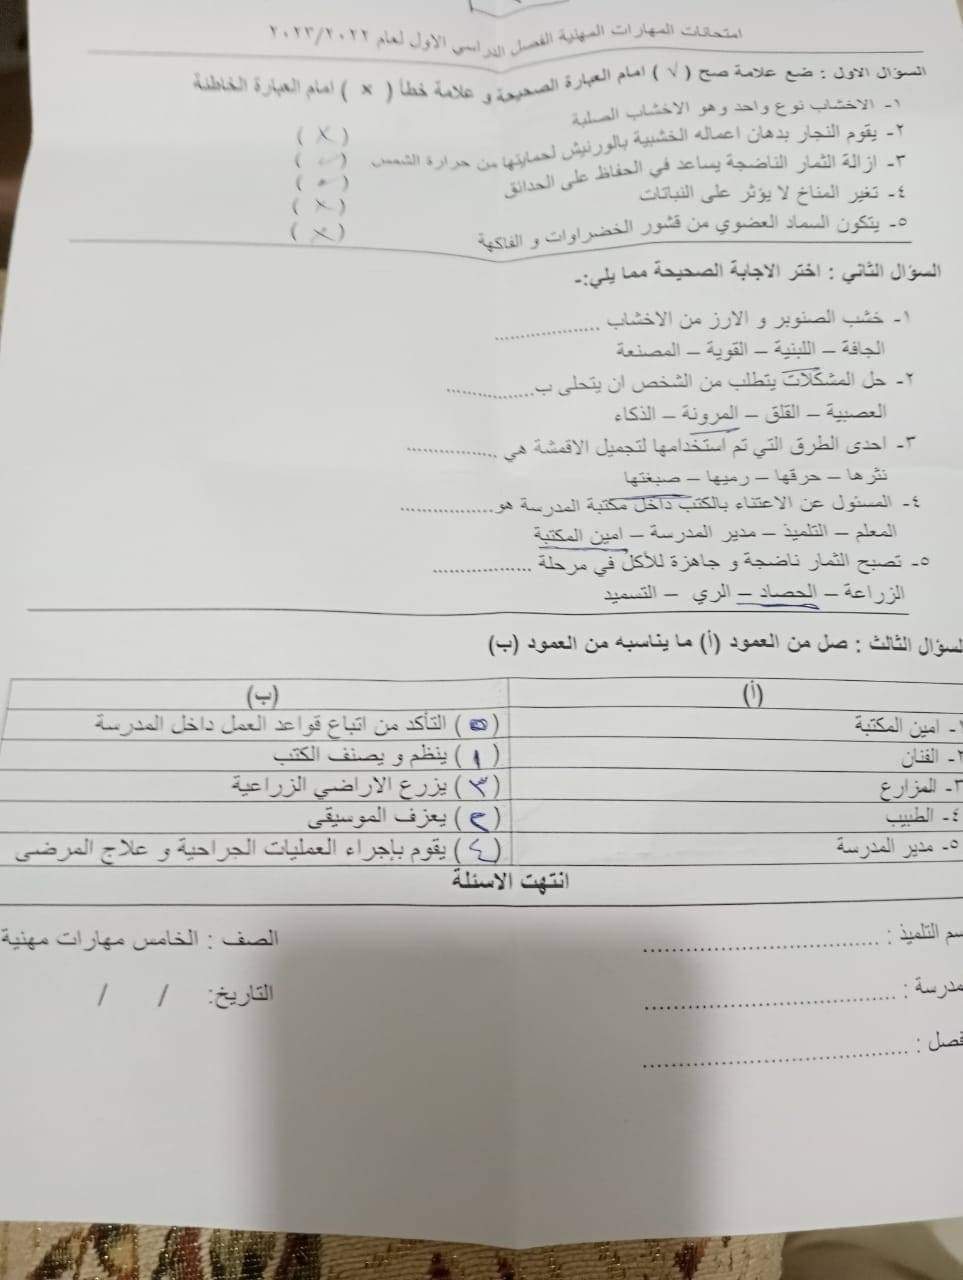 امتحانات المهارات المهنية الفصل الدراسي الاول لعام ٢٠٢٣/٢٠٢٢
السؤال الاول : ضع علامة صح ( √ ) امام العبارة الصحيحة و علامة خطأ ( × ) امام العبارة الخاطئة
١- الاخشاب نوع واحد وهو الاخشاب الصلبة ( × )
٢- يقوم النجار بدهان اعماله الخشبية بالورنيش لحمايتها من حرارة الشمس ( ✓ )
٣- ازالة الثمار الناضجة يساعد في الحفاظ على الحدائق ( )
٤- تغير المناخ لا يؤثر على النباتات ( × )
٥- يتكون السماد العضوي من قشور الخضراوات و الفاكهة ( × )
السؤال الثاني : اختر الاجابة الصحيحة مما يلي:-
١- خشب الصنوبر و الارز من الاخشاب ..................
الجافة – اللينية – القوية – المصنعة
٢- حل المشكلات يتطلب من الشخص ان يتحلى ب...............
العصبية – القلق – المرونة – الذكاء
٣- احدى الطرق التي تم استخدامها لتجميل الاقمشة هي ...............
نثرها – حرقها – رميها – صبغتها
٤- المسئول عن الاعتناء بالكتب داخل مكتبة المدرسة هو...............
المعلم – التلميذ – مدير المدرسة – امين المكتبة
٥- تصبح الثمار ناضجة و جاهزة للأكل في مرحلة .................
الزراعة – الحصاد – الري – التسميد
لسؤال الثالث : صل من العمود (أ) ما يناسبه من العمود (ب)
(أ) (ب)
١- امين المكتبة ( ٥ ) التأكد من اتباع قواعد العمل داخل المدرسة
٢- الفنان ( ١ ) ينظم و يصنف الكتب
٣- المزارع ( ٣ ) يزرع الاراضي الزراعية
٤- الطبيب ( ٢ ) يعزف الموسيقى
٥- مدير المدرسة ( ٤ ) يقوم بإجراء العمليات الجراحية و علاج المرضى
انتهت الاسئلة
سم التلميذ : .............................. الصف : الخامس مهارات مهنية
مدرسة : .............................. التاريخ: / /
فصل : ..............................